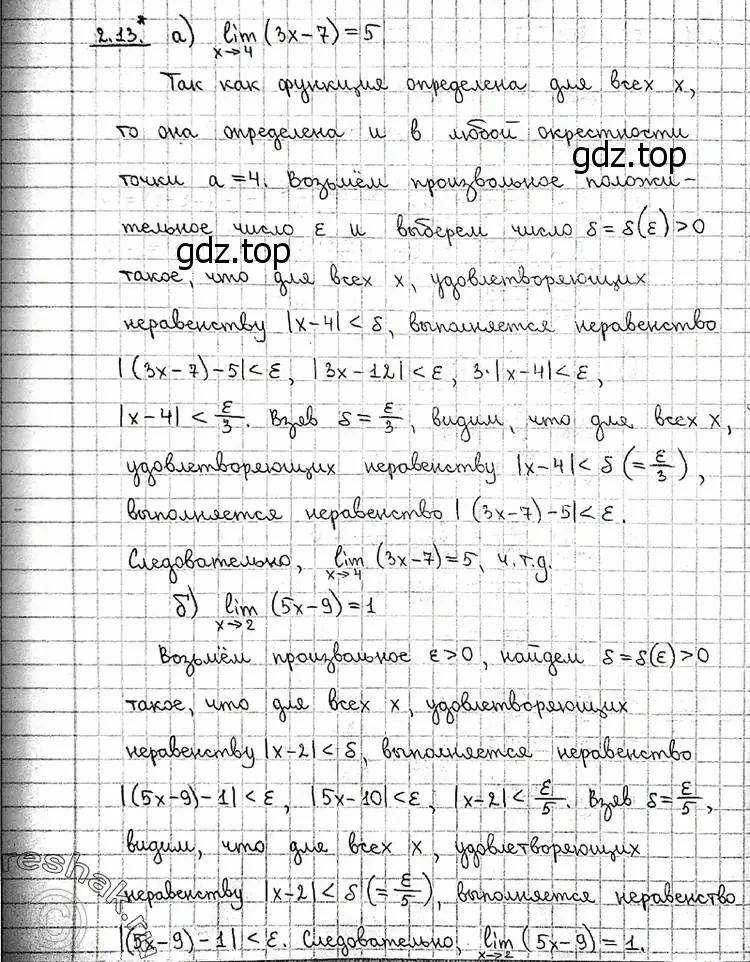 2.13.* а) lim x→4 (3x−7)=5
Так как функция определена для всех x,
то она определена и в любой окрестности
gdz.top
точки a=4. Возьмём произвольное положи-
тельное число ε и выберем число δ=δ(ε)>0
gdz.top
такое, что для всех x, удовлетворяющих
неравенству |x−4|<δ, выполняется неравенство
|(3x−7)−5|<ε, |3x−12|<ε, 3·|x−4|<ε,
|x−4|<ε/3. Взяв δ=ε/3, видим, что для всех x,
удовлетворяющих неравенству |x−4|<δ(=ε/3),
выполняется неравенство |(3x−7)−5|<ε.
Следовательно, lim x→4 (3x−7)=5, ч.т.д.
б) lim x→2 (5x−9)=1
Возьмём произвольное ε>0, найдем δ=δ(ε)>0
такое, что для всех x, удовлетворяющих
неравенству |x−2|<δ, выполняется неравенство
|(5x−9)−1|<ε, |5x−10|<ε, |x−2|<ε/5. Взяв δ=ε/5,
видим, что для всех x, удовлетворяющих
неравенству |x−2|<δ(=ε/5), выполняется неравенство
|(5x−9)−1|<ε. Следовательно, lim x→2 (5x−9)=1.
reshak.ru